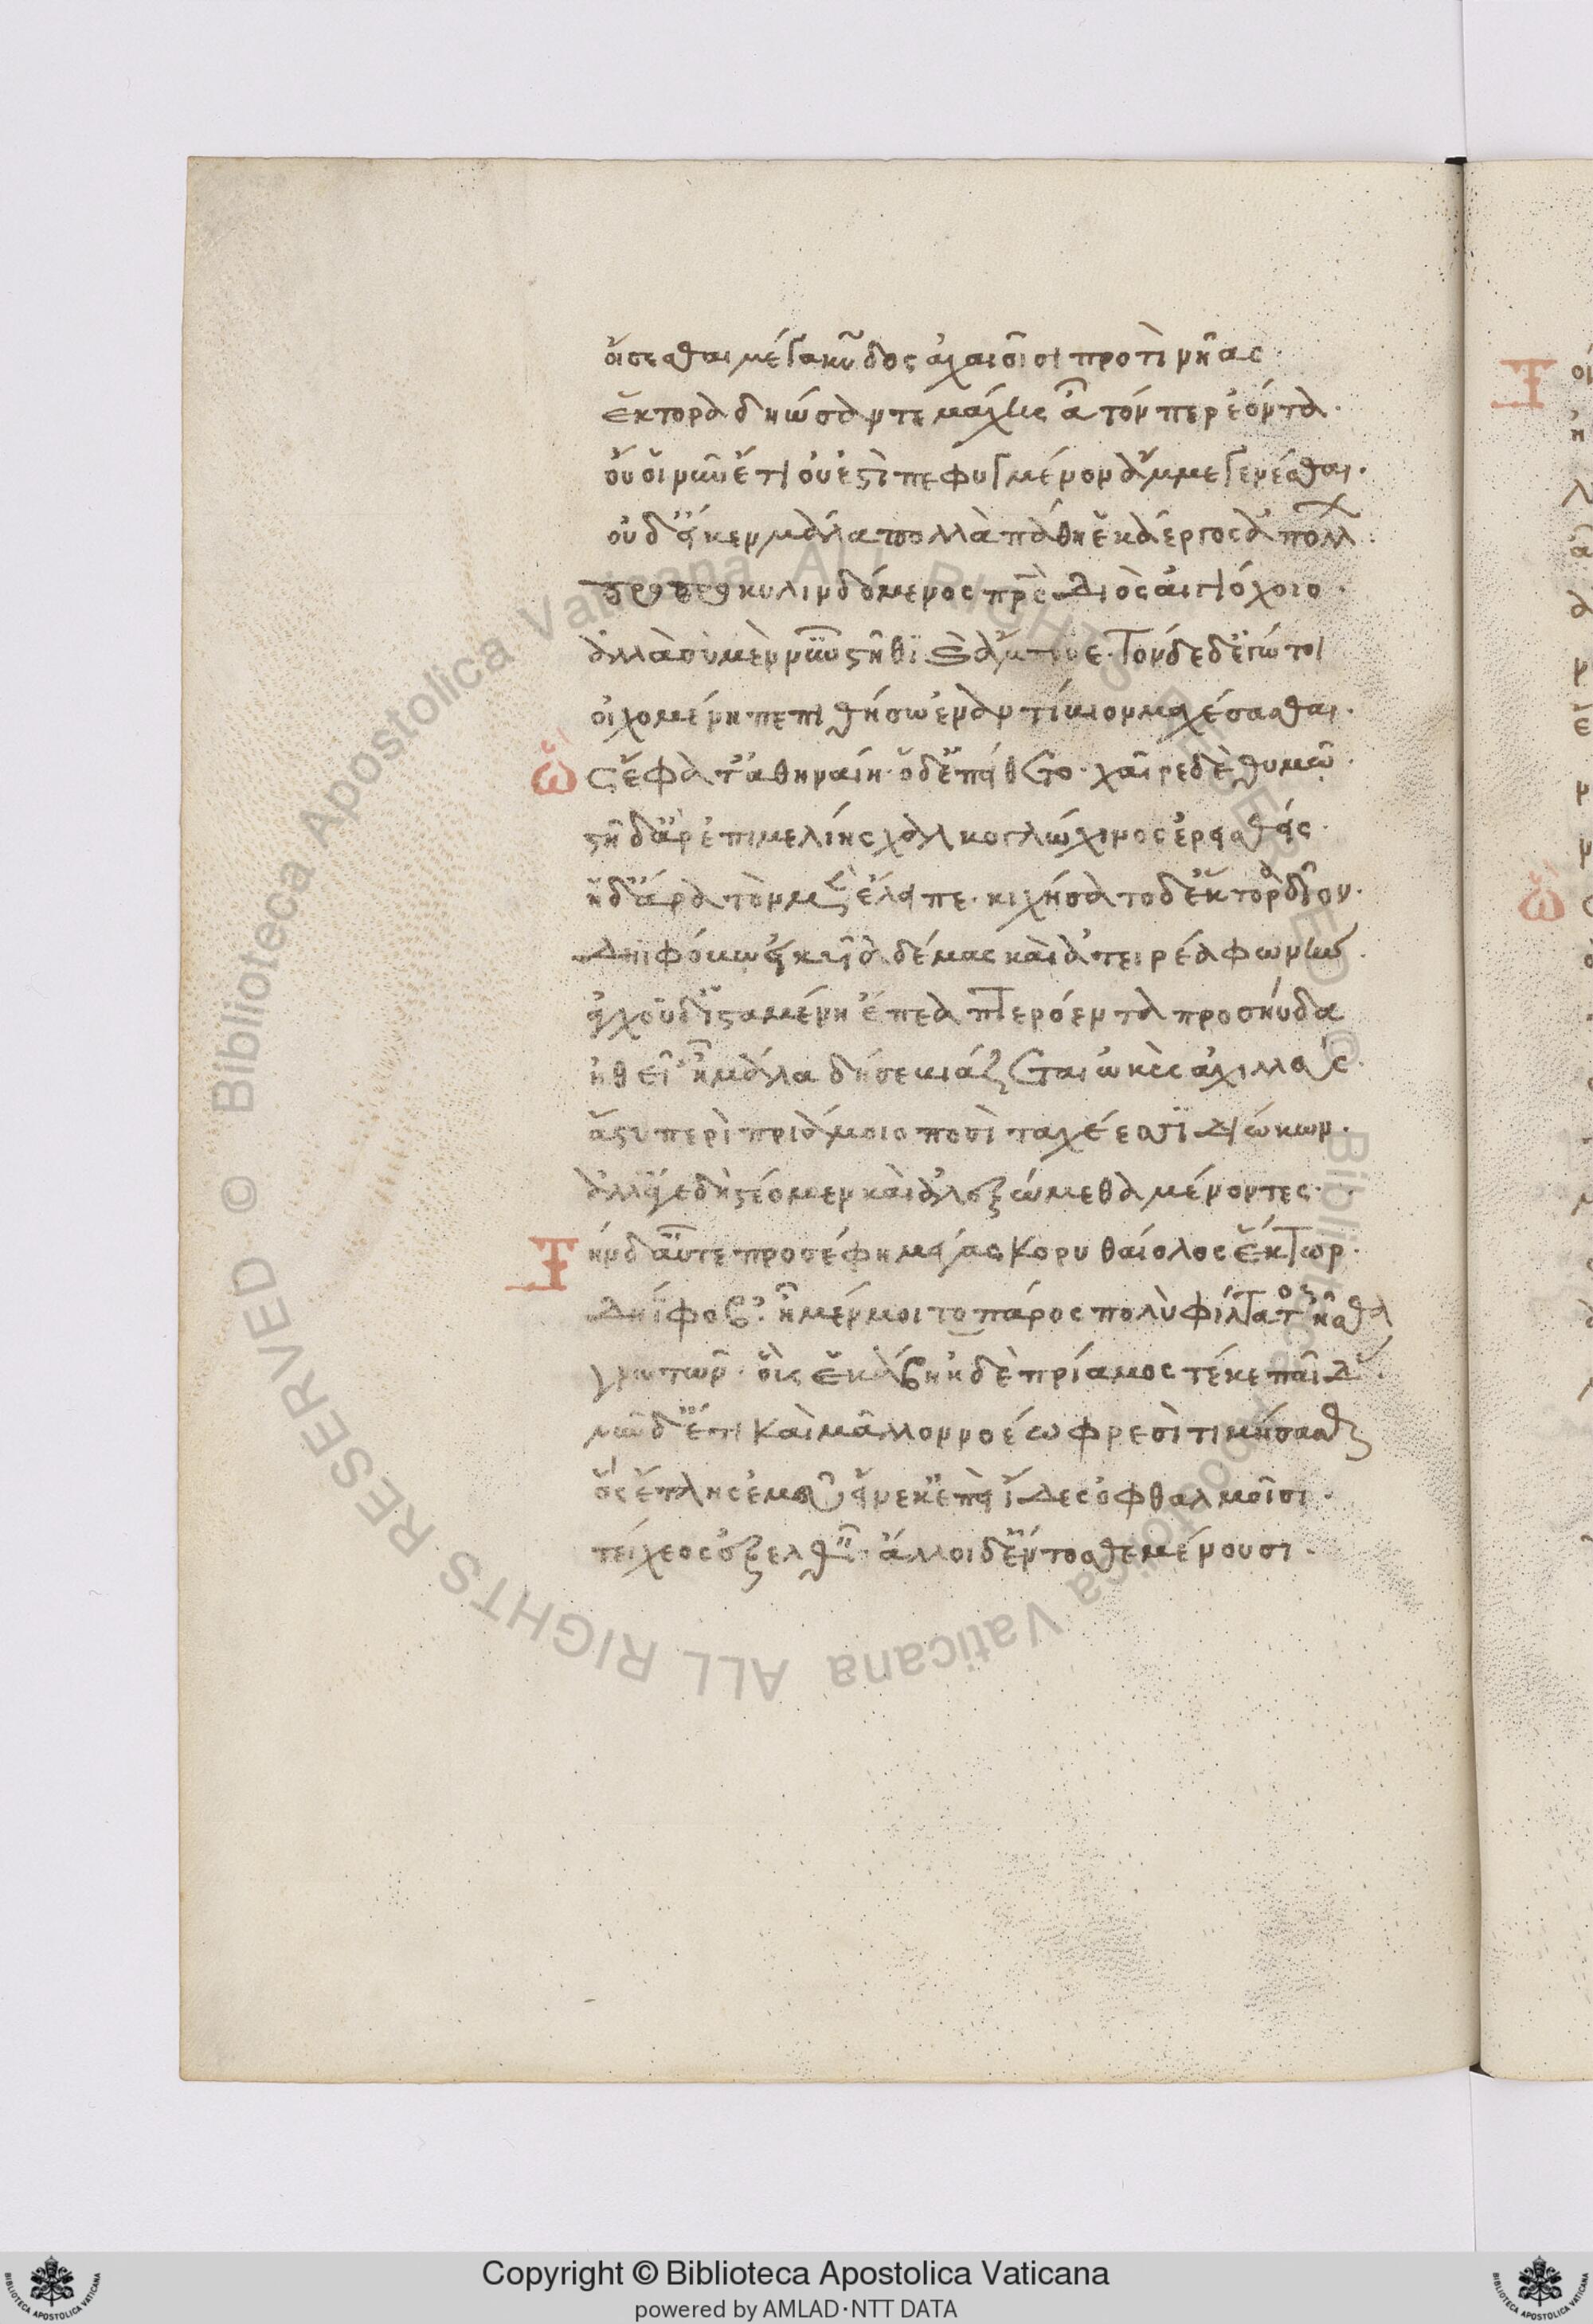 οἴσεσθαι μέγα κῦδος ἀχαιοῖσι προτὶ νῆας.
ἕκτορα δηώσαντε μάχης ἆτόν περ ἐόντα.
οὔ οἱ νῦν ἔτι οὐ ἐστὶ πεφυγμένον ἄμμε γενέσθαι.
οὐδ' εἴ κεν μάλα πολλὰ πάθη ἑκάεργος ἀπόλλων.
προπροκυλινδόμενος πρὸς Διὸς αἰγιόχοιο.
ἀλλὰ σὺ μὲν νῦν στῆθι καὶ ἄμπνυε. τόνδε δ' ἐγώ τοι
οἰχομένη πεπιθήσω ἐναντίβιον μαχέσασθαι.
ὣς ἔφατ' ἀθηναίη. ὁ δ' ἐπείθετο. χαῖρε δὲ θυμῷ.
στῆ δ' ἄρ' ἐπὶ μελίης χαλκογλώχινος ἐρεισθείς.
ἡ δ' ἄρα τὸν μὲν ἔλειπε. κιχήσατο δ' ἕκτορα δῖον.
Δηιφόβω εἰκυῖα δέμας καὶ ἀτειρέα φωνήν.
ἀγχοῦ δ' ἱσταμένη ἔπεα πτερόεντα προσηύδα
ἠθεῖ' ἦ μάλα δή σε βιάζεται ὠκὺς ἀχιλλεύς.
ἄστυ περὶ πριάμοιο ποσὶ ταχέεσσι Διώκων.
ἀλλ' ἄγε δὴ στέομεν καὶ ἀλεξώμεθα μένοντες.
τὴν δ' αὖτε προσέφη μέγας κορυθαίολος ἕκτωρ.
Δηΐφοβ'. ἦ μέν μοι τὸ πάρος πολὺ φίλτατος ἦσθα
γνωτῶν. οὓς ἑκάβη ἠδὲ πρίαμος τέκε παῖδας.
νῦν δ' ἔτι καὶ μᾶλλον νοέω φρεσὶ τιμήσασθαι
ὃς ἔτλης ἐμεῦ εἵνεκ' ἐπεὶ ἴδες ὀφθαλμοῖσι.
τείχεος ἐξελθεῖν. ἄλλοι δ' ἔντοσθε μένουσι.
Copyright © Biblioteca Apostolica Vaticana
powered by AMLAD·NTT DATA